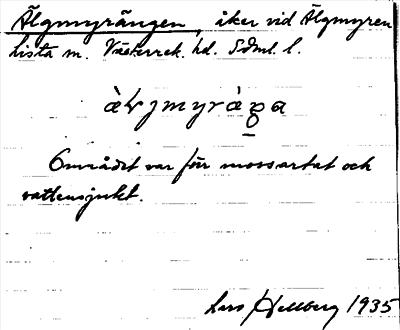 Älgmyrängen, åker vid Älgmyren
Lista m. Västerrek. hd. Sdml. l.
Området var förr mossartat och
vattensjukt.
Lars Hellberg 1935